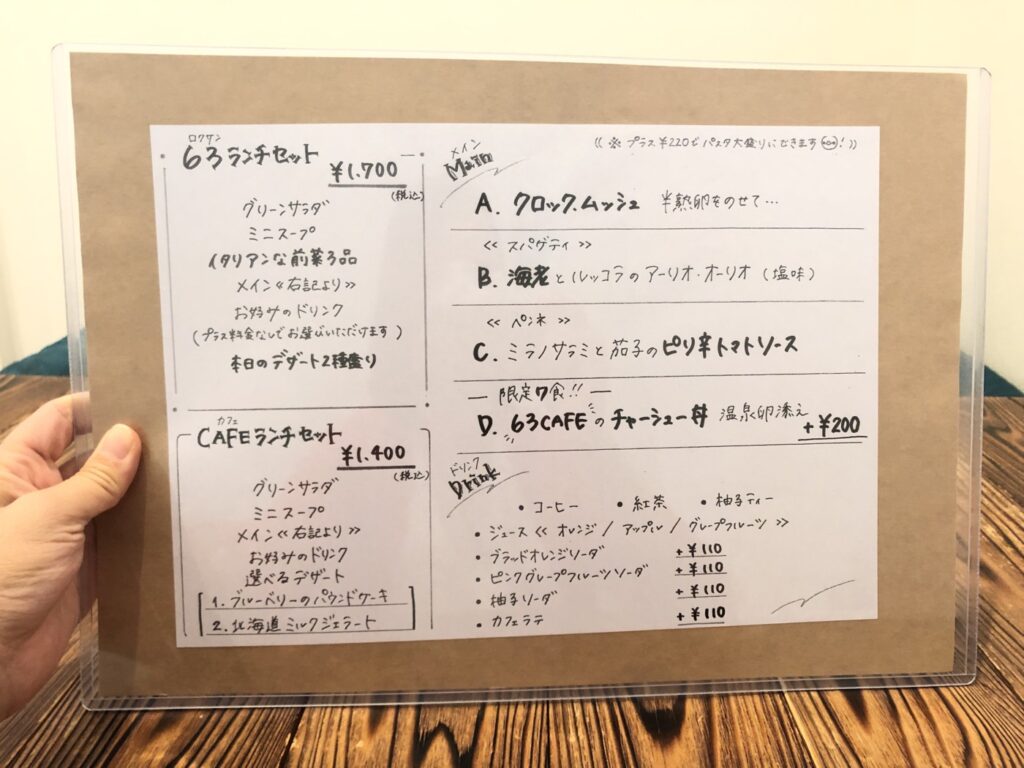 ロクサン
63ランチセット
¥1.700
(税込)
グリーンサラダ
ミニスープ
イタリアンな前菜3品
メイン≪右記より≫
お好みのドリンク
(プラス料金なしでお選びいただけます)
本日のデザート2種盛り
カフェ
CAFEランチセット
¥1.400
(税込)
グリーンサラダ
ミニスープ
メイン≪右記より≫
お好みのドリンク
選べるデザート
1. ブルーベリーのパウンドケーキ
2. 北海道ミルクジェラート
メイン
Main
(( ※ プラス¥220でパスタ大盛りにできます! ))
A. クロックムッシュ 半熟卵をのせて…
≪ スパゲティ ≫
B. 海老とルッコラのアーリオ・オーリオ (塩味)
≪ ペンネ ≫
C. ミラノサラミと茄子のピリ辛トマトソース
― 限定7食!! ―
D. 63CAFEのチャーシュー丼 温泉卵添え
+¥200
ドリンク
Drink
• コーヒー • 紅茶 • 柚子ティー
• ジュース≪ オレンジ / アップル / グレープフルーツ ≫
• ブラッドオレンジソーダ +¥110
• ピンクグレープフルーツソーダ +¥110
• 柚子ソーダ +¥110
• カフェラテ +¥110